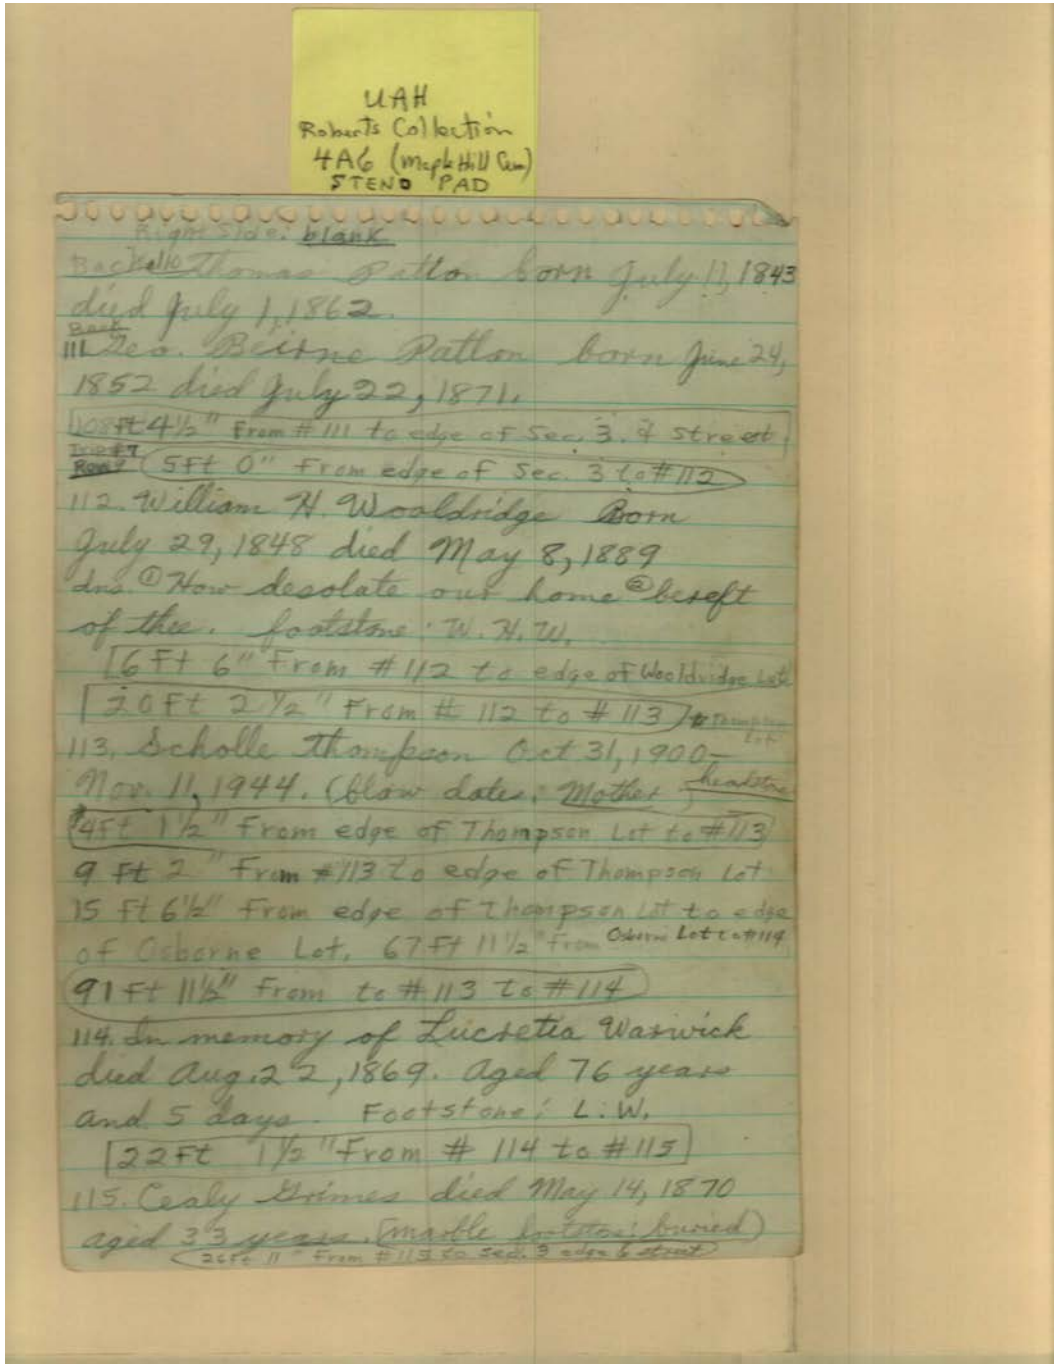 UAH
Roberts Collection
4A6 (Maple Hill Cem)
STENO PAD
Right Side: blank
Back 110 Thomas Patton born July 11, 1843
died July 1, 1862.
Back
111. Geo. Beirne Patton born June 24,
1852 died July 22, 1871.
108ft 4½" From #111 to edge of Sec. 3. & street
Row
5ft 0" From edge of Sec. 3 to #112
112. William H. Wooldridge Born
July 29, 1848 died May 8, 1889
Ins. ① How desolate our home ② bereft
of thee. footstone: W. H. W.
[6 Ft 6" From #112 to edge of Wooldridge Lot
[20 Ft 2½" From # 112 to # 113] Thompson Lot
113. Scholle Thompson Oct 31, 1900–
Nov. 11, 1944. (blow dates: Mother) headstone
4Ft 1½" From edge of Thompson Lot to #113
9 ft 2" From #113 to edge of Thompson Lot
15 ft 6½" From edge of Thompson Lot to edge
of Osborne Lot. 67 Ft 11½" From Osborne Lot to #114
91 Ft 11½" From to #113 to #114
114. In memory of Lucretia Warwick
died Aug. 22, 1869. Aged 76 years
and 5 days. Footstone: L. W.
[22 Ft 1½" From # 114 to #115]
115. Cealy Grimes died May 14, 1870
aged 33 years. [marble footstone: buried)
26Ft 11" From #115 to Sec. 3 edge & street